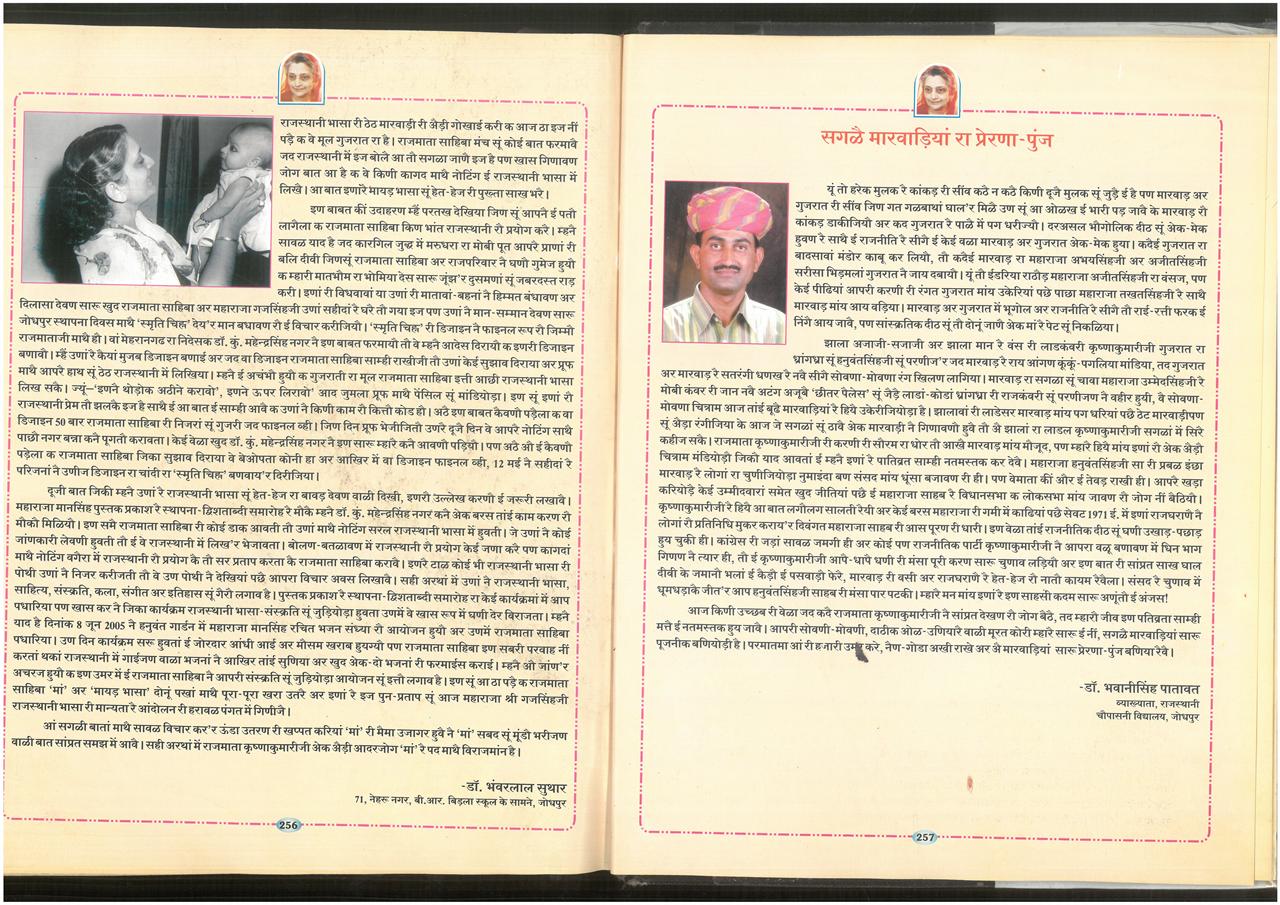 राजस्थानी भासा री ठेठ मारवाड़ी री अैड़ी गोखाई करी क आज ठा इज नीं
पड़ै क वे मूल गुजरात रा है। राजमाता साहिबा मंच सूं कोई बात फरमावै
जद राजस्थानी में इंज बोले आ तौ सगळा जाणै इज है पण खास गिणावण
जोग बात आ है क वे किणी कागद माथे नोटिंग ई राजस्थानी भासा में
लिखै। आ बात इणांरे मायड़ भासा सूं हेत-हेज री पुख्ता साख भरै।
इण बाबत कीं उदाहरण म्हैं परतख देखिया जिण सूं आपनै ई पतौ
लागैला क राजमाता साहिबा किण भांत राजस्थानी रौ प्रयोग करै। म्हनै
सावळ याद है जद कारगिल जुद्ध में मरुधरा रा मोबी पूत आपरे प्राणां री
बलि दीवी जिणसूं राजमाता साहिबा अर राजपरिवार नै घणौ गुमेज हुयौ
क म्हारी मातभौम रा भोमिया देस सारू जूंझ'र दुसमणां सूं जबरदस्त राड़
करी। इणां री विधवावां या उणां री मातावां-बहनां नै हिम्मत बंधावण अर
दिलासा देवण सारू खुद राजमाता साहिबा अर महाराजा गजसिंहजी उणां सहीदां रे घरे तौ गया इज पण उणां नै मान-सम्मान देवण सारू
जोधपुर स्थापना दिवस माथै 'स्मृति चिह्न' देय'र मान बधावण रौ ई विचार करीजियौ। 'स्मृति चिह्न' री डिजाइन नै फाइनल रूप री जिम्मौ
राजमाताजी माथै ही। वां मेहरानगढ रा निदेसक डॉ. कुं. महेन्द्रसिंह नगर नै इण बाबत फरमायौ तौ वे म्हनै आदेस दिरायौ क इणरी डिजाइन
बणावौ। म्हैं उणां रे कैयां मुजब डिजाइन बणाई अर जद वा डिजाइन राजमाता साहिबा साम्ही राखीजी तौ उणां केई सुझाव दिराया अर प्रूफ
माथै आपरे हाथ सूं ठेठ राजस्थानी में लिखिया। म्हनै ई अचंभौ हुयौ क गुजराती रा मूल राजमाता साहिबा इत्ती आछी राजस्थानी भासा
लिख सकै। ज्यूं-'इणनै थोड़ोक अठीनै करावो', इणने ऊपर लिरावो' आद जुमला प्रूफ माथै पेंसिल सूं मांडियोड़ा। इण सूं इणां रौ
राजस्थानी प्रेम तौ झलकै इज है साथै ई आ बात ई साम्ही आवै क उणां नै किणी काम रौ कित्तौ कोड हौ। अठै इण बाबत कैवणी पड़ैला क वा
डिजाइन 50 बार राजमाता साहिबा री निजरां सूं गुजरी जद फाइनल व्ही। जिण दिन प्रूफ भेजीजितौ उणरे दूजै दिन वे आपरे नोटिंग साथै
पाछी नगर बन्ना कनै पूगती करावता। केई वेळा खुद डॉ. कुं. महेन्द्रसिंह नगर नै इण सारू म्हारे कनै आवणौ पड़ियौ। पण अठै औ ई कैवणौ
पड़ैला क राजमाता साहिबा जिका सुझाव दिराया वे बेओपता कोनी हा अर आखिर में वा डिजाइन फाइनल व्ही, 12 मई नै सहीदां रे
परिजनां नै उणीज डिजाइन रा चांदी रा 'स्मृति चिह्न' बणवाय'र दिरीजिया।
दूजी बात जिकी म्हनै उणां रे राजस्थानी भासा सूं हेत-हेज रा बावड़ देवण वाळी दिखी, इणरौ उल्लेख करणौ ई जरूरी लखावै।
महाराजा मानसिंह पुस्तक प्रकाश रे स्थापना-द्विशताब्दी समारोह रे मौकै म्हनै डॉ. कुं. महेन्द्रसिंह नगर कनै अेक बरस तांई काम करण रौ
मौकौ मिळियौ। इण समै राजमाता साहिबा री कोई डाक आवती तौ उणां माथै नोटिंग सरल राजस्थानी भासा में हुवती। जे उणां नै कोई
जांणकारी लेवणी हुवती तौ ई वे राजस्थानी में लिख'र भेजावता। बोलण-बतळावण में राजस्थानी रौ प्रयोग केई जणा करै पण कागदां
माथै नोटिंग वगैरा में राजस्थानी रौ प्रयोग कै तौ सर प्रताप करता कै राजमाता साहिबा करावै। इणरे टाळ कोई भी राजस्थानी भासा री
पोथी उणां नै निजर करीजती तौ वे उण पोथी नै देखियां पछै आपरा विचार अवस लिखावै। सही अरथां में उणां नै राजस्थानी भासा,
साहित्य, संस्क्रति, कला, संगीत अर इतिहास सूं गैरौ लगाव है। म्हारे मन में पुस्तक प्रकाश रे स्थापना-द्विशताब्दी समारोह रा केई कार्यक्रमां में आप
पधारिया पण खास कर नै जिका कार्यक्रम राजस्थानी भासा-संस्क्रति सूं जुड़ियोड़ा हुवता उणमें वे खास रूप में घणी देर बिराजता। म्हनै
याद है दिनांक 8 जून 2005 ने हनुवंत गार्डन में महाराजा मानसिंह रचित भजन संध्या रौ आयोजन हुयौ अर उणमें राजमाता साहिबा
पधारिया। उण दिन कार्यक्रम सरू हुवतां ई जोरदार आंधी आई अर मौसम खराब हुयग्यौ पण राजमाता साहिबा इण सबरी परवाह नीं
करतां थकां राजस्थानी में गाईजण वाळा भजनां नै आखिर तांई सुणिया अर खुद अेक-दो भजनां री फरमाईस कराई। म्हनै औ जांण'र
अचरज हुयौ क इण उमर में ई राजमाता साहिबा नै आपरी संस्क्रति सूं जुड़ियोड़ा आयोजन सूं इत्तौ लगाव है। इण सूं आ ठा पड़ै क राजमाता
साहिबा 'मां' अर 'मायड़ भासा' दोनूं पखां माथै पूरा-पूरा खरा उतरै अर इणां रे इज पुन-प्रताप सूं आज महाराजा श्री गजसिंहजी
राजस्थानी भासा री मान्यता रे आंदोलन री हरावळ पंगत में गिणीजै।
आं सगळी बातां माथै सावळ विचार कर'र ऊंडा उतरण री खप्पत करियां 'मां' री मैमा उजागर हुवै नै 'मां' सबद सूं मूंडौ भरीजण
वाळी बात सांप्रत समझ में आवै। सही अरथां में राजमाता कृष्णाकुमारीजी अेक अैड़ी आदरजोग 'मां' रे पद माथै विराजमांन है।
-डॉ. भंवरलाल सुथार
71, नेहरू नगर, बी.आर. बिड़ला स्कूल के सामने, जोधपुर
256
सगळै मारवाड़ियां रा प्रेरणा-पुंज
यूं तो हरेक मुलक रे कांकड़ री सींव कठै न कठै किणी दूजै मुलक सूं जुड़ै ई है पण मारवाड़ अर
गुजरात री सींव जिण गत गळबाथां घाल'र मिळै उण सूं आ ओळख ई भारी पड़ जावे के मारवाड़ री
कांकड़ डाकीजियौ अर कद गुजरात रे पाळै में पग धरीज्यौ। दरअसल भौगोलिक दीठ सूं अेक-मेक
हुवण रे साथै ई राजनीति रे सीगै ई केई वळा मारवाड़ अर गुजरात अेक-मेक हुया। कदैई गुजरात रा
बादसावां मंडोर काबू कर लियौ, तौ कदैई मारवाड़ रा महाराजा अभयसिंहजी अर अजीतसिंहजी
सरीसा भिड़मलां गुजरात नै जाय दबायौ। यूं तौ ईडरिया राठौड़ महाराजा अजीतसिंहजी रा वंसज, पण
केई पीढियां आपरी करणी री रंगत गुजरात मांय उकेरियां पछै पाछा महाराजा तखतसिंहजी रे साथै
मारवाड़ मांय आय वड़िया। मारवाड़ अर गुजरात में भूगोल अर राजनीति रे सीगै तौ राई-रत्ती फरक ई
निंगै आय जावै, पण सांस्क्रतिक दीठ सूं तौ दोनूं जाणै अेक मां रे पेट सूं निकळिया।
झाला अजाजी-सजाजी अर झाला मान रे वंस री लाडकंवरी कृष्णाकुमारीजी गुजरात रा
ध्रांगध्रा सूं हनुवंतसिंहजी सूं परणीज'र जद मारवाड़ रे राय आंगण कूंकूं-पगलिया मांडिया, तद गुजरात
अर मारवाड़ रे सतरंगी धणख रे नवै सीगै सोवणा-मोवणा रंग खिलण लागिया। मारवाड़ रा सगळा सूं चावा महाराजा उम्मेदसिंहजी रे
मोबी कंवर री जान नवै अटंग अजूबै 'छीतर पेलेस' सूं जैड़ै लाडां-कोडां ध्रांगध्रा री राजकंवरी सूं परणीजण नै वहीर हुयी, वै सोवणा-
मोवणा चित्राम आज तांई बूढै मारवाड़ियां रे हियै उकेरीजियोड़ा है। झालावां री लाडेसर मारवाड़ मांय पग धरियां पछै ठेठ मारवाड़ीपण
सूं अैड़ा रंगीजिया के आज जे सगळां सूं ठावै अेक मारवाड़ी नै गिणावणी हुवै तौ अै झालां रा लाडल कृष्णाकुमारीजी सगळां में सिरै
कहीज सकै। राजमाता कृष्णाकुमारीजी री करणी री सौरम रा धोर तौ आखै मारवाड़ मांय मौजूद, पण म्हारे हियै मांय इणां रौ अेक अैड़ौ
चित्राम मंडियोड़ौ जिकौ याद आवतां ई म्हनै इणां रे पातिव्रत साम्ही नतमस्तक कर देवै। महाराजा हनुवंतसिंहजी सा री प्रबळ इंछा
मारवाड़ रे लोगां रा चुणीजियोड़ा नुमाइंदा बण संसद मांय धूंसा बजावण री ही। पण वेमाता कीं और ई तेवड़ राखी ही। आपरे खड़ा
करियोड़ै केई उम्मीदवारां समेत खुद जीतियां पछै ई महाराज साहब रे विधानसभा क लोकसभा मांय जावण रौ जोग नीं बैठियौ।
कृष्णाकुमारीजी रे हियै आ बात लगौलग सालती रैयी अर केई बरस महाराजा री गमी में काढियां पछै सेवट 1971 ई. में इणां राजघराणै नै
लोगां रौ प्रतिनिधि मुकर कराय'र दिवंगत महाराजा साहब री आस पूरण री धारी। इण वेळा तांई राजनीतिक दीठ सूं घणी उखाड़-पछाड़
हुय चुकी ही। कांग्रेस री जड़ां सावळ जमगी ही अर कोई पण राजनीतिक पार्टी कृष्णाकुमारीजी नै आपरा वळू बणावण में घिन भाग
गिणण नै त्यार ही, तौ ई कृष्णाकुमारीजी आपै-धापै धणी री मंसा पूरी करण सारू चुणाव लड़ियौ अर इण बात री सांप्रत साख घाल
दीवी के जमानौ भलां ई कैड़ौ ई पसवाड़ौ फेरे, मारवाड़ री वसी अर राजघराणै रे हेत-हेज रौ नातौ कायम रेवैला। संसद रे चुणाव में
धूमधड़ाके जीत'र आप हनुवंतसिंहजी साहब री मंसा पार पटकी। म्हारे मन मांय इणां रे इण साहसी कदम सारू अणूंतौ ई अंजस!
आज किणी उच्छब री वेळा जद कदै राजमाता कृष्णाकुमारीजी नै सांप्रत देखण रौ जोग बैठै, तद म्हारौ जीव इण पतिव्रता साम्ही
मत्तै ई नतमस्तक हुय जावै। आपरी सोवणी-मोवणी, दाठीक ओळ-उणियारै वाळी मूरत कोरी म्हारे सारू ई नीं, सगळै मारवाड़ियां सारू
पूजनीक बणियोड़ी है। परमातमा आं री हजारी उमर करे, नेण-गोडा अखी राखे अर अै मारवाड़ियां सारू प्रेरणा-पुंज बणिया रैवै।
-डॉ. भवानीसिंह पातावत
व्याख्याता, राजस्थानी
चौपासनी विद्यालय, जोधपुर
257